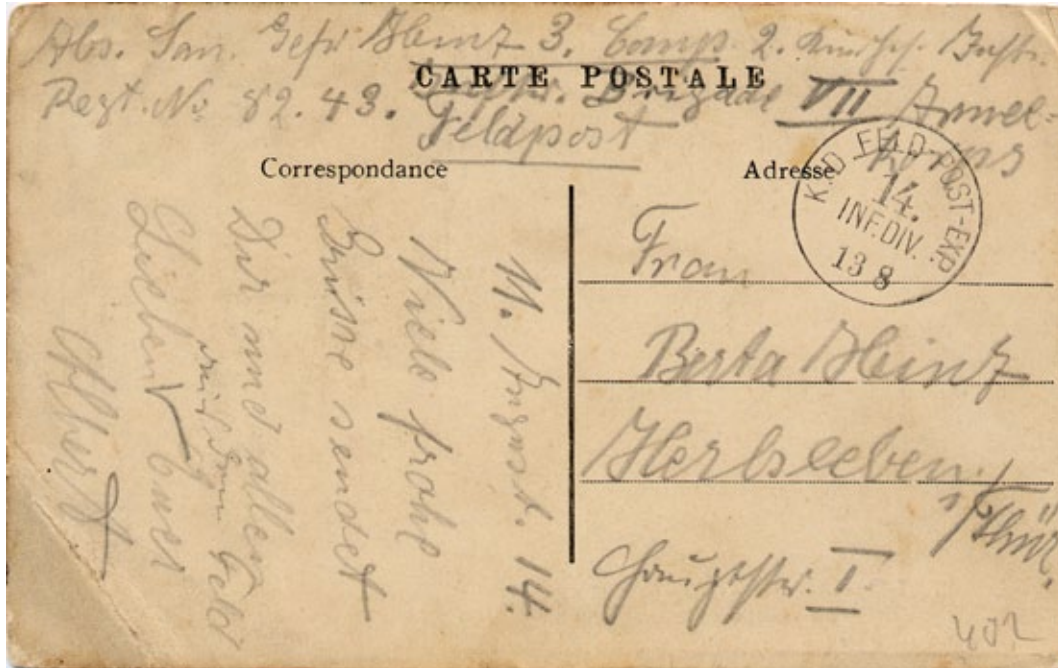 Abs. San. Gefr. Heinz 3. Comp. 2. Inftr.
Regt. No 82. 43. Inftr. Brigade VII Armee-
Korps
Feldpost
CARTE POSTALE
Correspondance
Adresse
K.D FELD-POST-EXP.
14.
INF.DIV.
13 8
11. August. 14.
Viele frohe
Grüsse sendet
Dir und allen
Lieben Euer
Albert
Frau
Berta Heinz
Herbsleben
i/Thür.
Hauptstr. I.
402